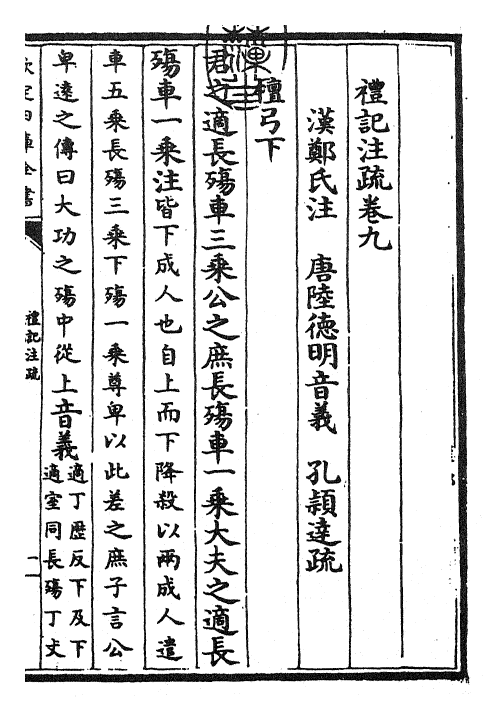 禮記注疏卷九
漢鄭氏注　唐陸德明音義　孔穎達疏
檀弓下
君之適長殤車三乘公之庶長殤車一乘大夫之適長
殤車一乘注皆下成人也自上而下降殺以兩成人遣
車五乘長殤三乘下殤一乘尊卑以此差之庶子言公
卑逺之傳曰大功之殤中從上音義適丁歴反下及下
適室同長殤丁丈
欽定四庫全書
禮記注疏
一